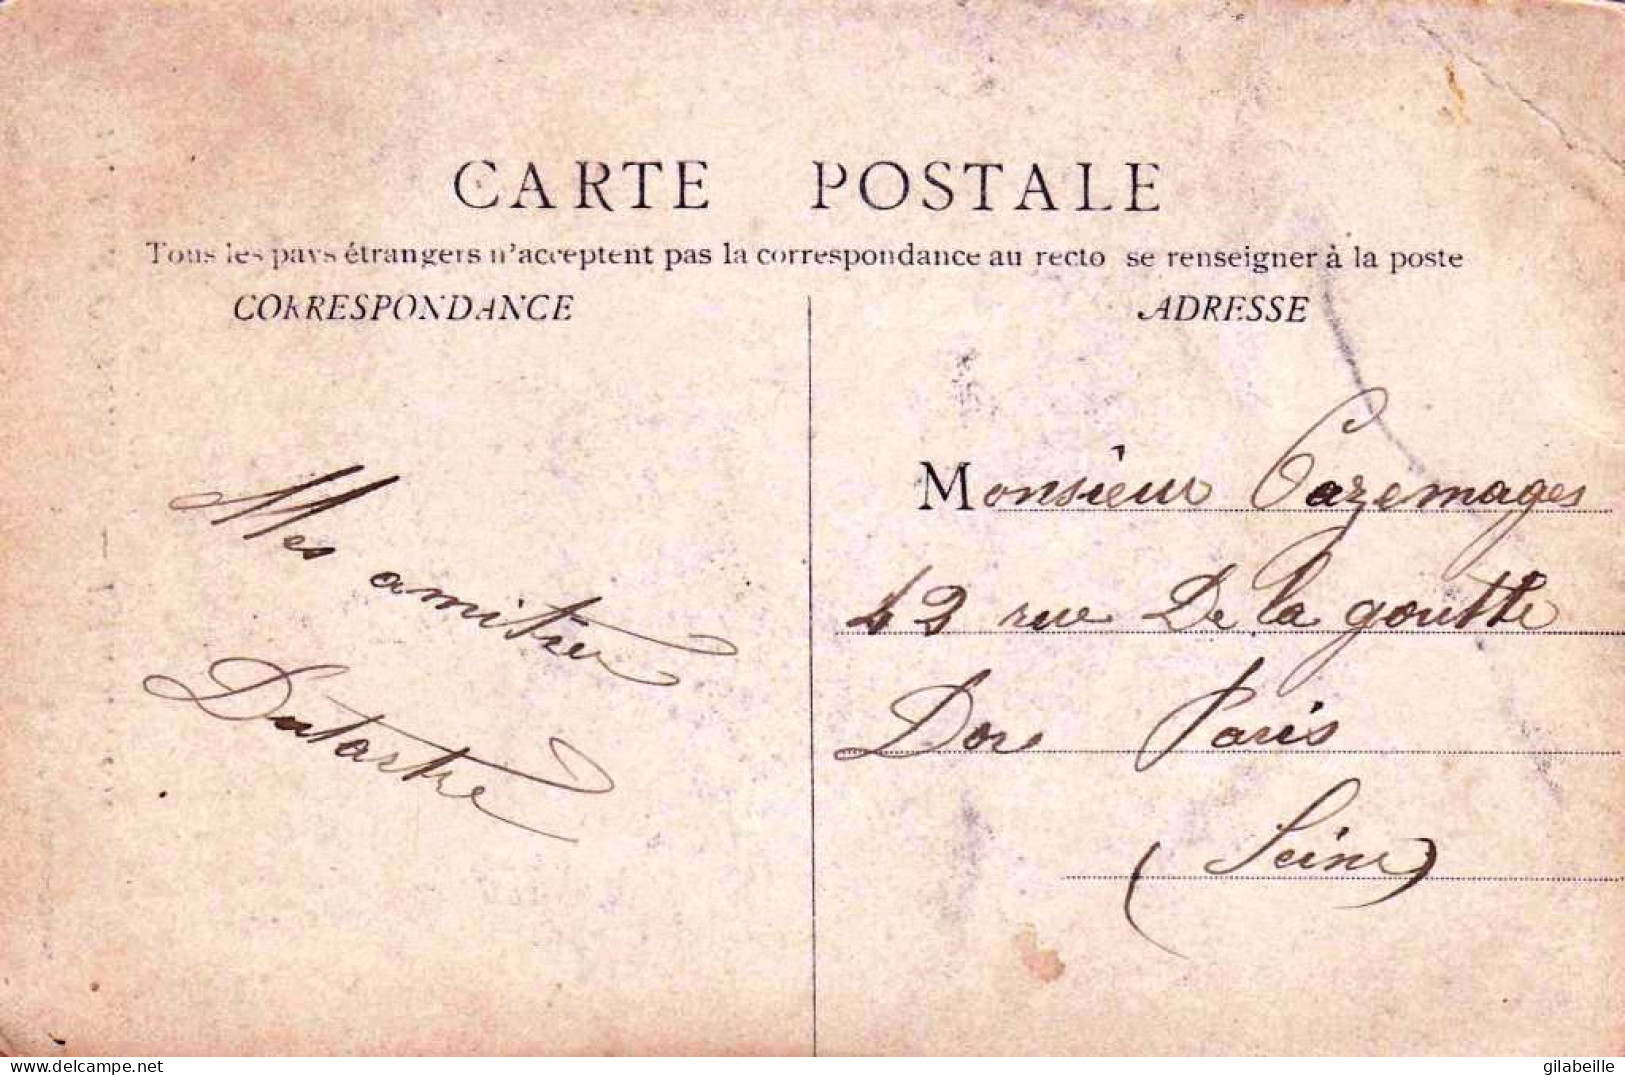 CARTE POSTALE
Tous les pays étrangers n'acceptent pas la correspondance au recto se renseigner à la poste
CORRESPONDANCE
ADRESSE
Mes amitiés
Dutartre
Monsieur Cazemages
42 rue De la goutte
Dor Paris
(Seine)
delcampe.net
gilabeille